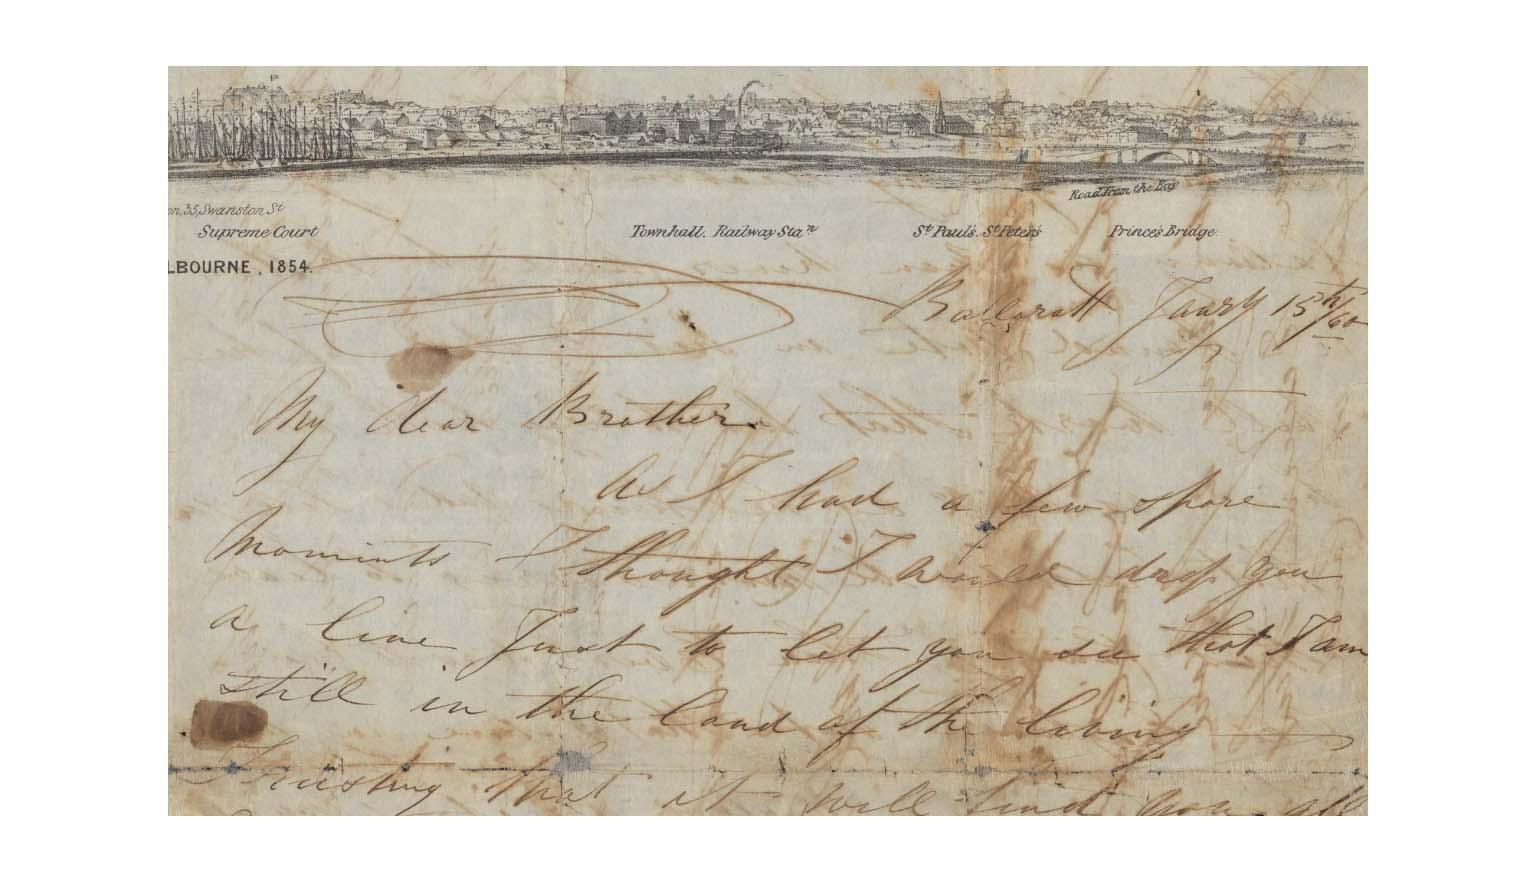 Road from the Bay
on, 35, Swanston St
Supreme Court Townhall. Railway Stan St Paul's. St Peter's Prince's Bridge
LBOURNE, 1854.
Ballaratt Janry 15th/60
My dear Brother
As I had a few spare
Moments I thought I would drop you
a line Just to let you see that I am
still in the land of the living
Trusting that it will find you all